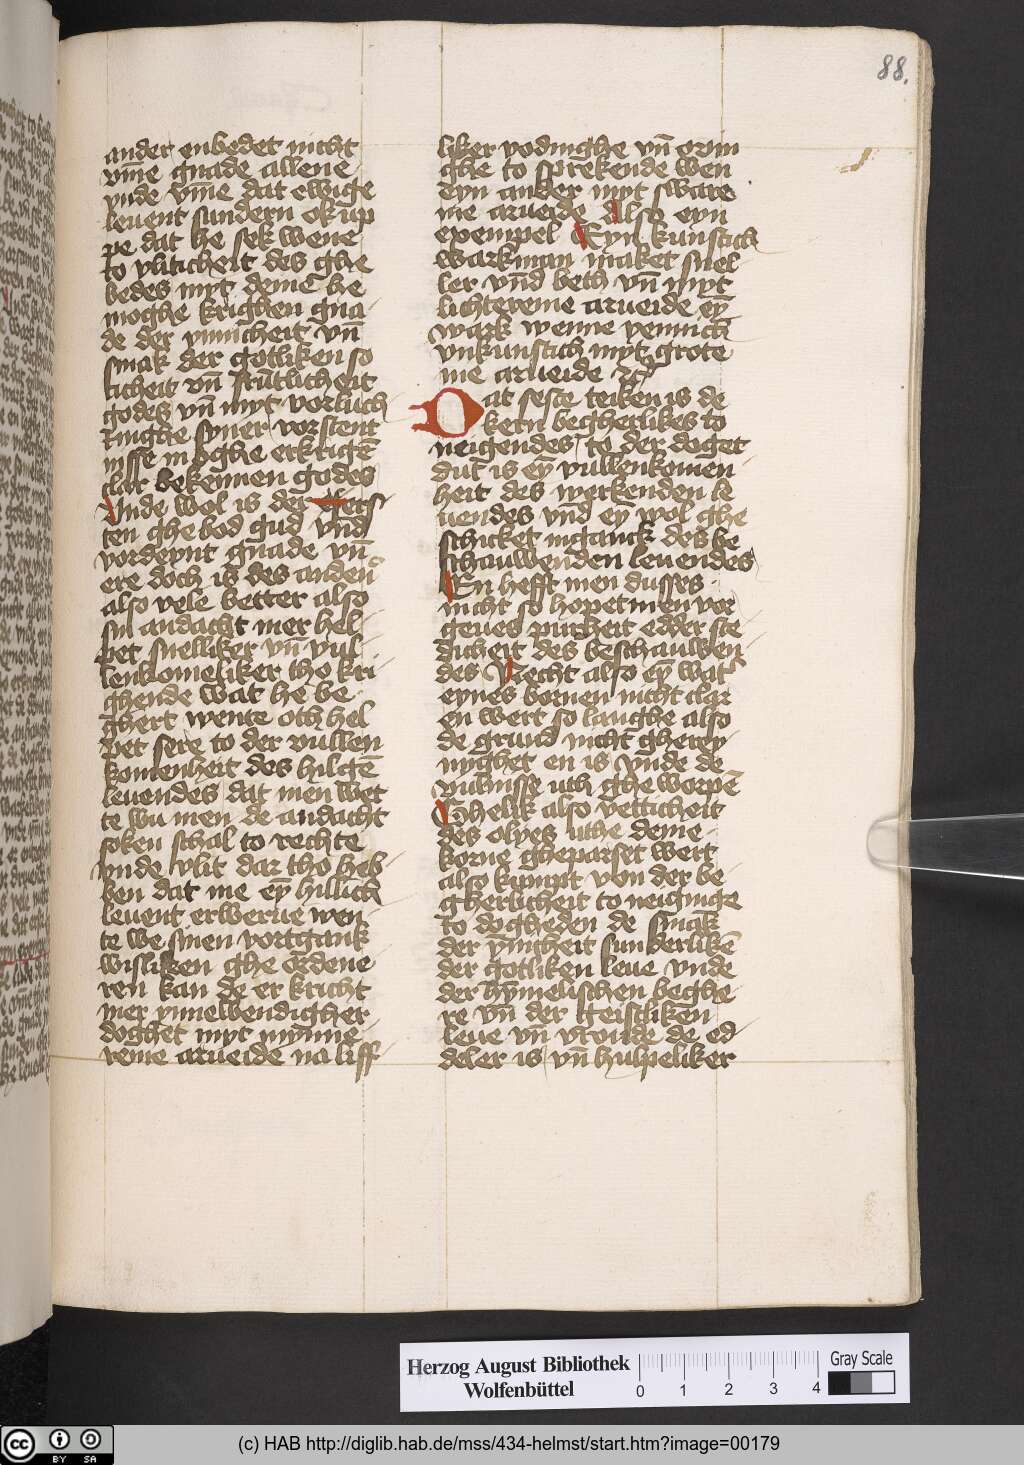 88.
ander enbedet nicht
vm̄e gnade allene
vnde vm̄e dat ewige
leuent sundern ok up
pe dat he sek wene
to yliticheit des ghe
bedes myt deme he
moghe krighen gna
de der ynnicheit vn̄
smak der gotliken so
ticheit vn̄
godes vn̄ myt vorluch
tinghe syner vorstent
nisse moghe erkrigē
clar bekennen godes
Unde wol is der
ten ghe bod gud vn̄d
vordeynt gnade vn̄
ere doch is des anderē
also vele better also
sin andacht mer hel
pet snelliker vn̄ vul
lenkomeliker tho kri
ghende wat he be
ghert wente och hel
pet sere to der vullen
komenheit des hilgē
leuendes dat men wet
te wu men de andacht
soken schal to rechte
vnde vlit dar tho heb
ben dat me eȳ hillich
leuent erwerue wen
te we sinen vortgank
wisliken ghe ordene
ren kan de er kricht
mer ynnewendigher
doghet myt mynne
reme arueide na liff
liker vodinghe vn̄ orin
ghe to sprekende wen
eyn ander myt sware
me arueide also eyn
exempel Eyn kunstich
warkman maket snel
ler vn̄d beth vn̄ myt
lichtereme arueide eȳ
wark wenne yennich
vnkunstich myt grote
me arueide
Dat seste teiken is de
kern begherlikes to
neigendes to der doget
dut is eȳ vullenkomen
heit des werkenden le
uendes vn̄d eȳ wol ghe
schicket inganck des be
schauwenden leuendes
En hefft men dusses
nicht so hopet men vor
geues purheit edder ste
dicheit des beschauwen
des Recht also eȳ wat
eynes bornen nicht clar
en wert so langhe also
de grund nicht gherey
nyghet en is vnde de
vulnisse uth ghe worpē
Ghelik also vetticheit
des olyes uthe deme
korne gheparset wert
also kumpt von der be
gherlicheit to neiginge
to dogheden de smak
der ȳnicheit sunderlikē
der gotliken leue vnde
der hȳmelischen beghe
re vn̄ der geistliken
leue vn̄ vroude de ed
deler is vn̄ hulpeliker
Herzog August Bibliothek
Wolfenbüttel
0 1 2 3 4
Gray Scale
cc BY SA
(c) HAB http://diglib.hab.de/mss/434-helmst/start.htm?image=00179